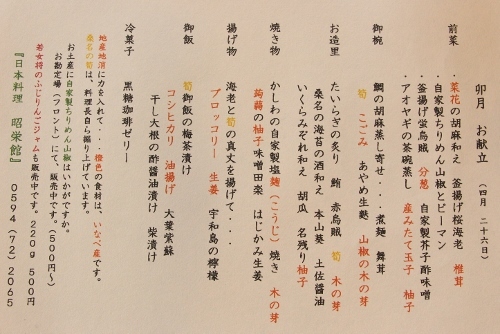 卯月 お献立 (四月 二十六日)
前菜 ・菜花の胡麻和え 釜揚げ桜海老 椎茸
・自家製ちりめん山椒とピーマン
・釜揚げ蛍烏賊 分葱 自家製芥子酢味噌
・アオヤギの茶碗蒸し 産みたて玉子 柚子
御椀 鯛の胡麻蒸し寄せ・・・煮麺 舞茸
筍 こごみ あやめ生麩 山椒の木の芽
お造里 たいらぎの炙り 鮪 赤烏賊 筍 木の芽
桑名の海苔の酒和え 本山葵 土佐醤油
いくらみぞれ和え 胡瓜 名残り柚子
焼き物 かしわの自家製塩麹(こうじ)焼き 木の芽
蒟蒻の柚子味噌田楽 はじかみ生姜
揚げ物 海老と筍の真丈を揚げて・・・
ブロッコリー 生姜 宇和島の檸檬
御飯 筍御飯の梅茶漬け
コシヒカリ 油揚げ 大葉紫蘇
干し大根の酢醤油漬け 柴漬け
冷菓子 黒糖珈琲ゼリー
地産地消に力を入れて・・・橙色の食材は、いなべ産です。
桑名の筍は、料理長自ら掘り上げています。
お土産に自家製ちりめん山椒はいかがですか。
お勘定場(フロント)にて、販売中です。(500円~)
若女将のふじりんごジャムも販売中です。220g 500円
『日本料理 昭栄館』 0594(72)2065